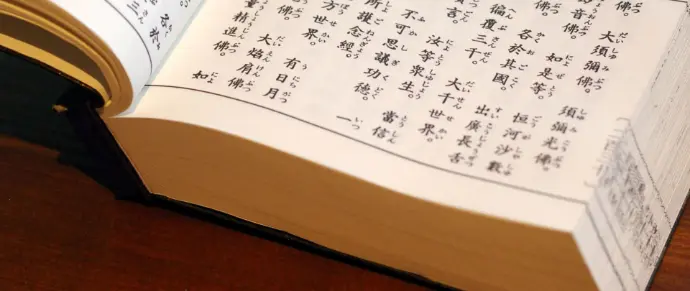 佛。 大須彌佛。 須彌光佛。
音佛。 如是等。 恒河沙數
佛。 各於其國。 出廣長舌
徧覆三千。 大千世界。
實言。 汝等衆生。 當信
不可思議功德。 一
所護念經。
方世界。 有日月
佛。 大焔肩佛。
量精進佛。 如
各於
三